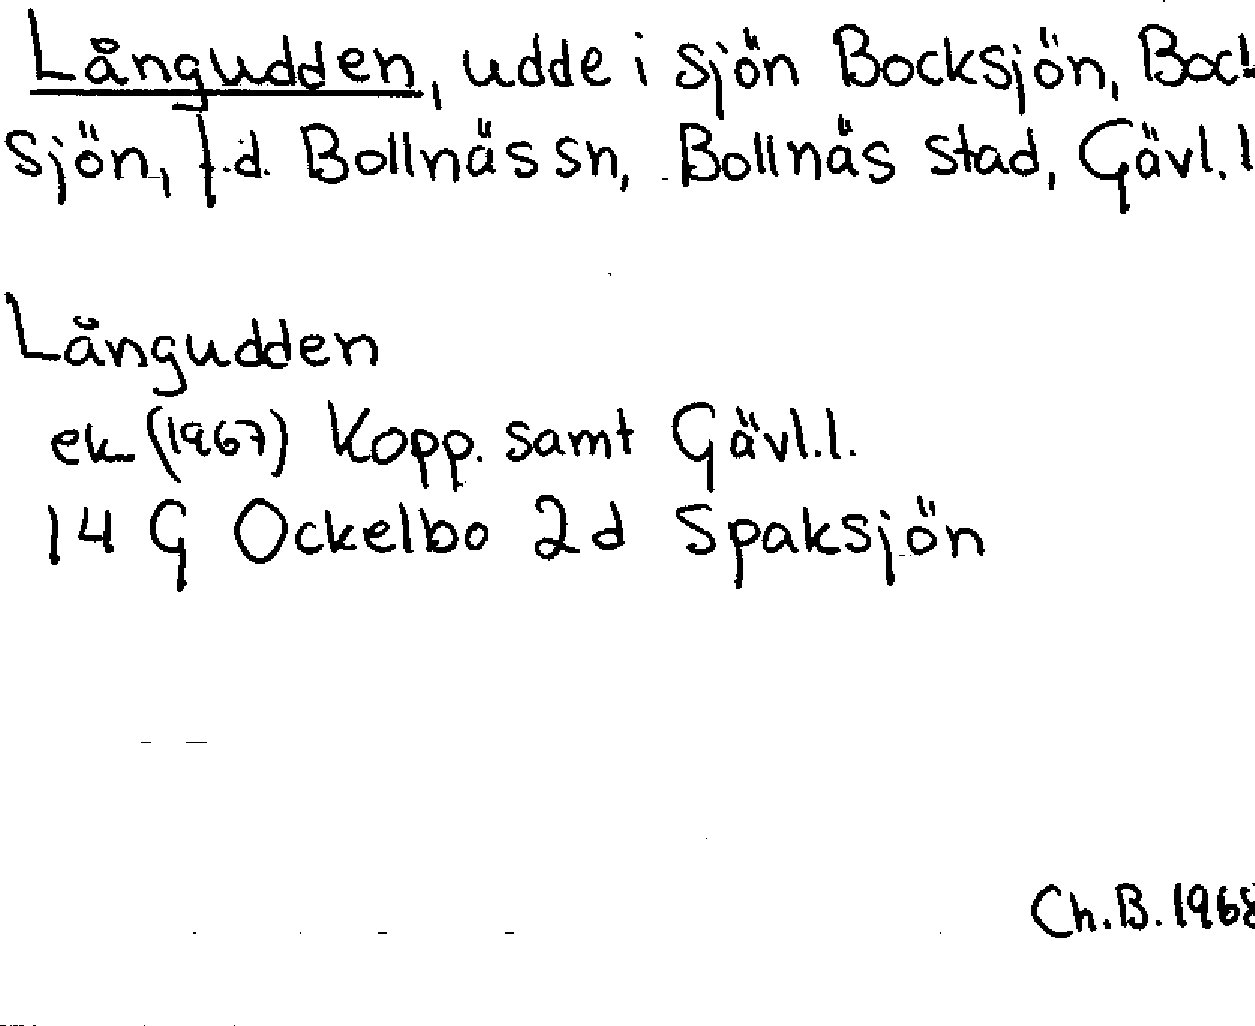 Långudden, udde i sjön Bocksjön, Bock
sjön, f.d. Bollnäs sn, Bollnäs stad, Gävl. l
Långudden
ek (1967) Kopp. samt Gävl.l.
14 G Ockelbo 2d Spaksjön
Ch.B. 1968